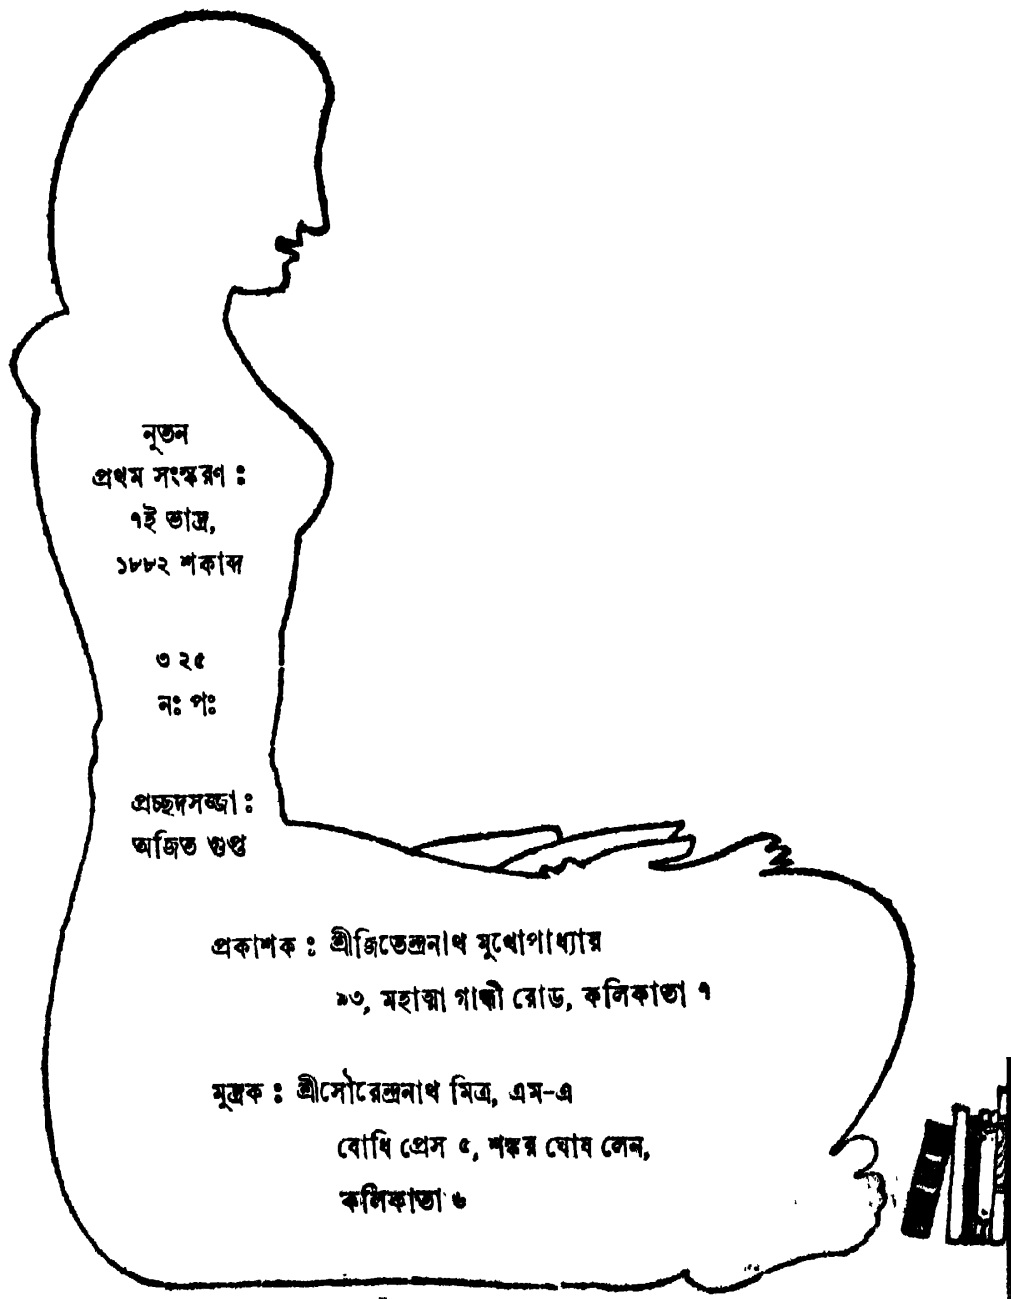 নূতন
প্রথম সংস্করণ :
৭ই ভাদ্র,
১৮৮২ শকাব্দ
৩ ২৫
নঃ পঃ
প্রচ্ছদসজ্জা :
অজিত গুপ্ত
প্রকাশক : শ্রীজিতেন্দ্রনাথ মুখোপাধ্যায়
৯৩, মহাত্মা গান্ধী রোড, কলিকাতা ৭
মুদ্রক : শ্রীসৌরেন্দ্রনাথ মিত্র, এম-এ
বোধি প্রেস ৫, শঙ্কর ঘোষ লেন,
কলিকাতা ৬